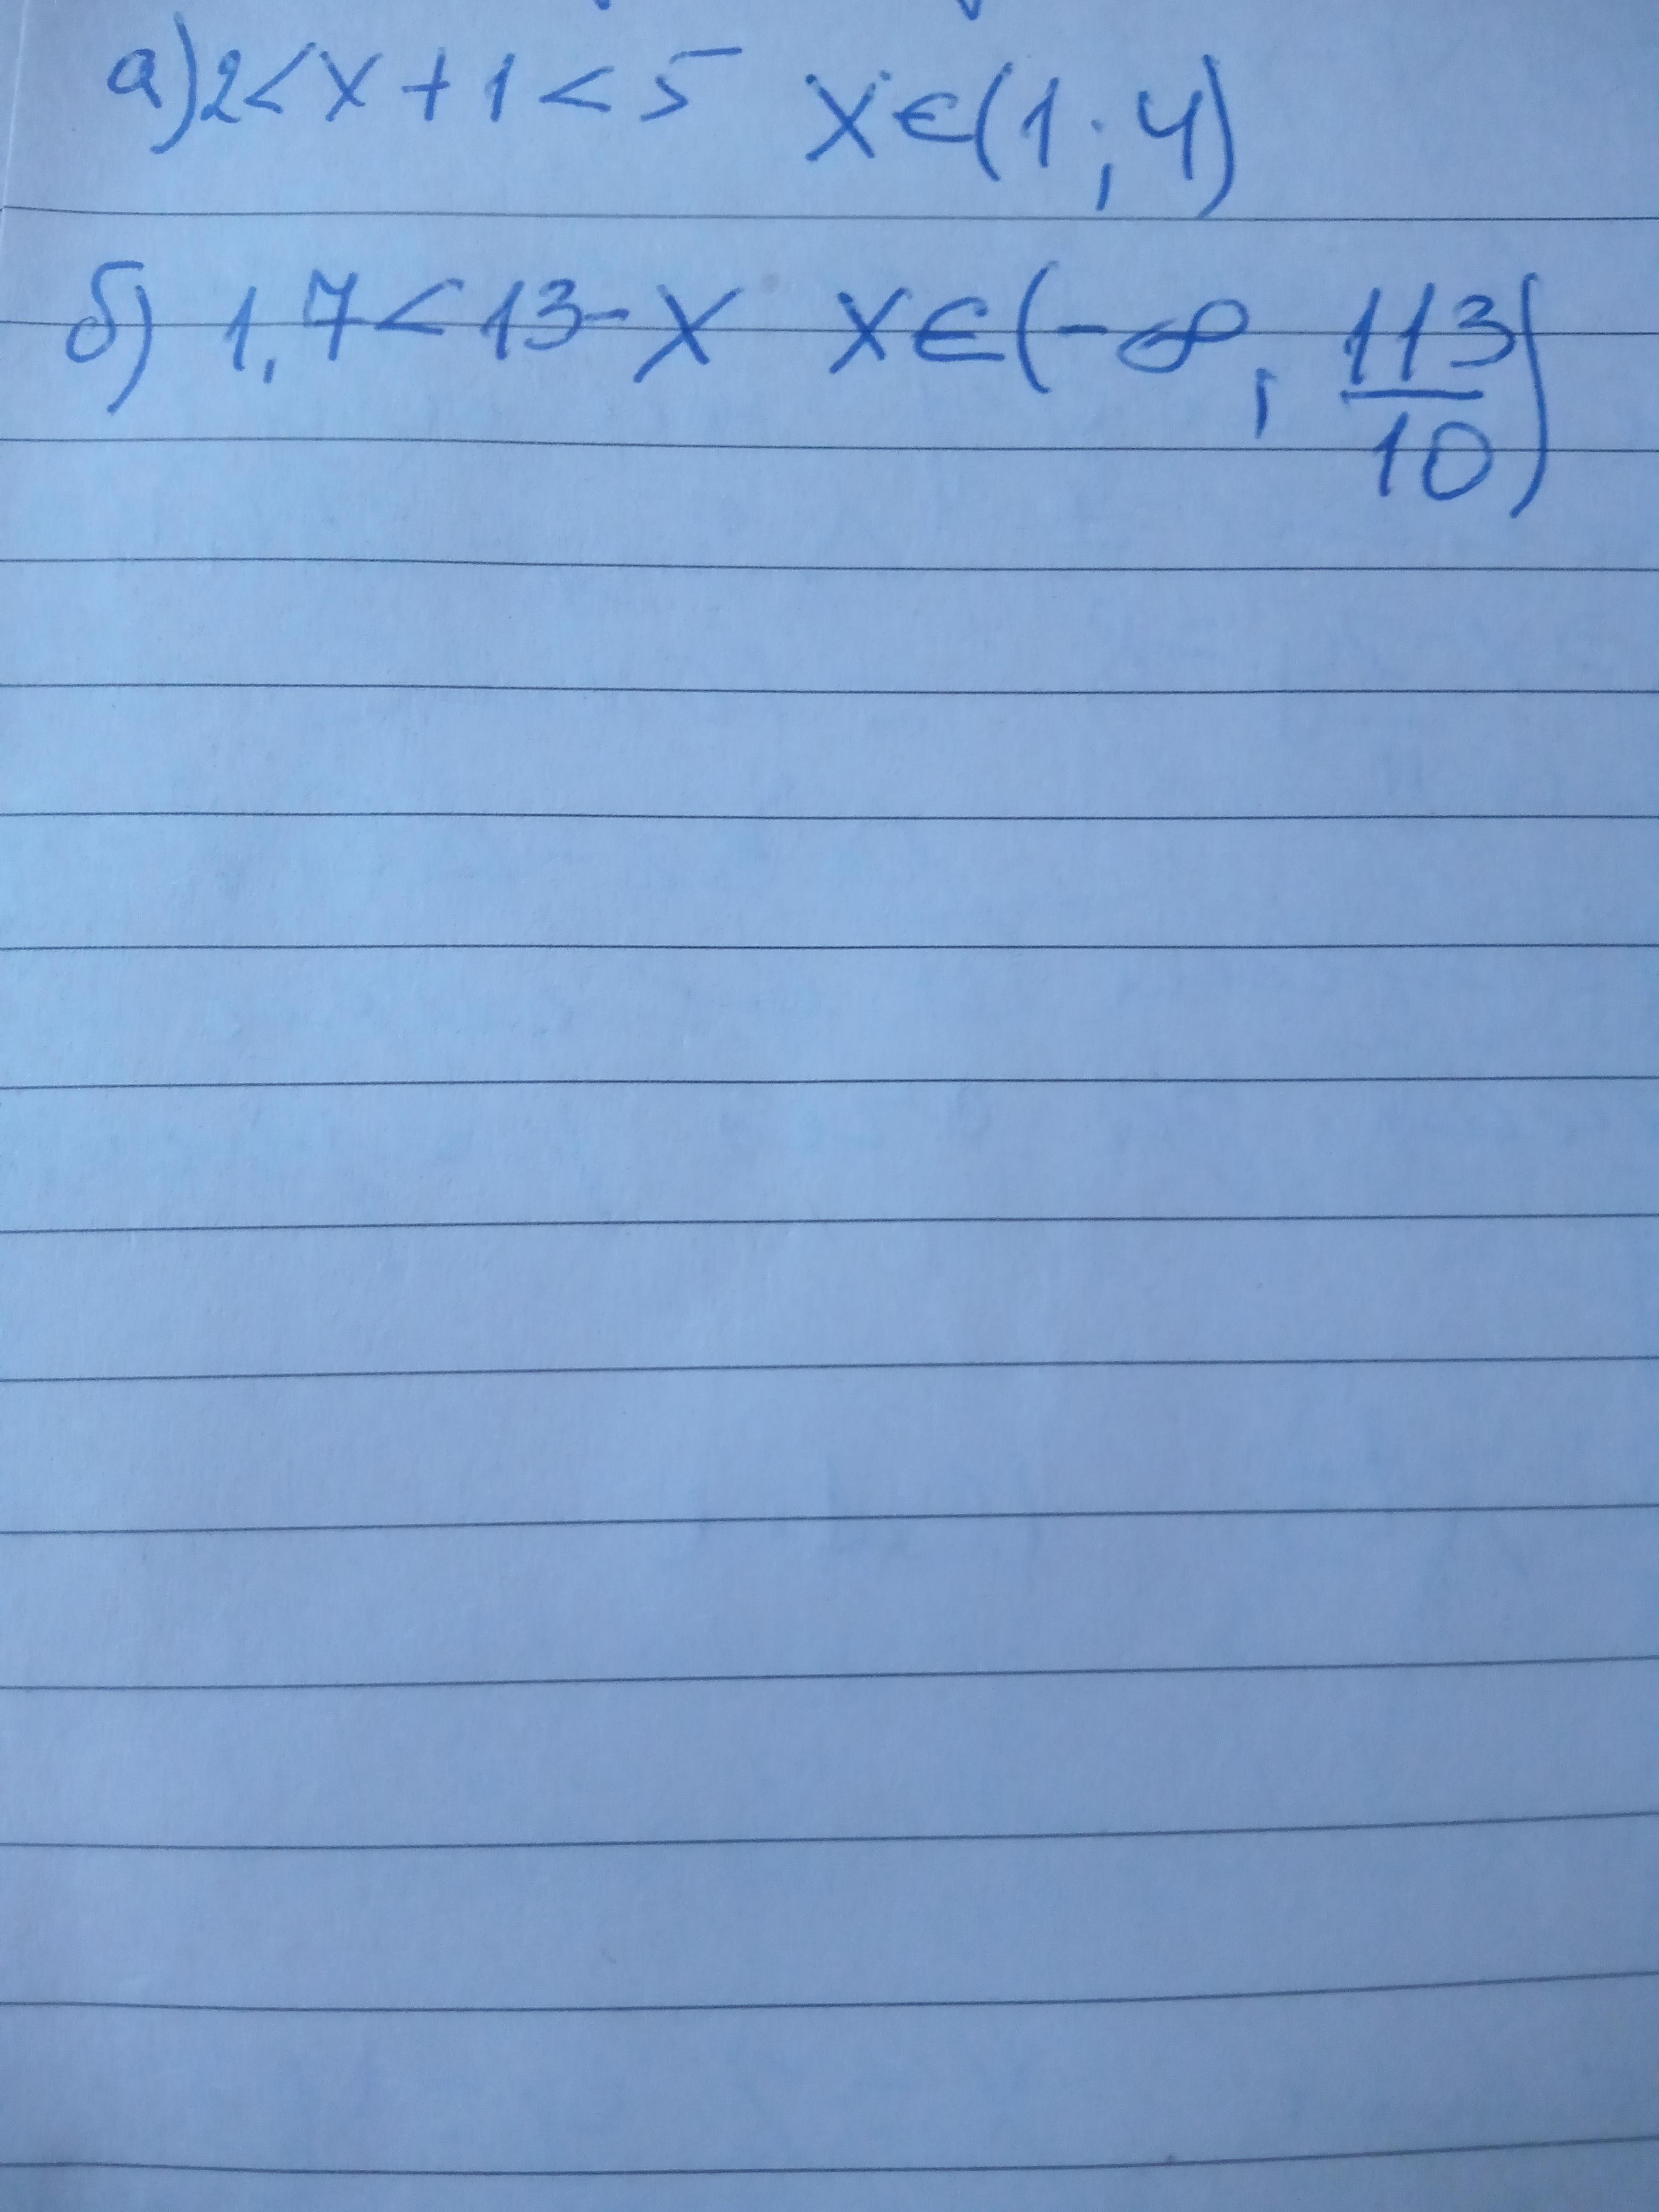 а) 2 < x + 1 < 5 x ∈ (1 ; 4)
б) 1,7 < 13 - x x ∈ (-∞, 113/10)